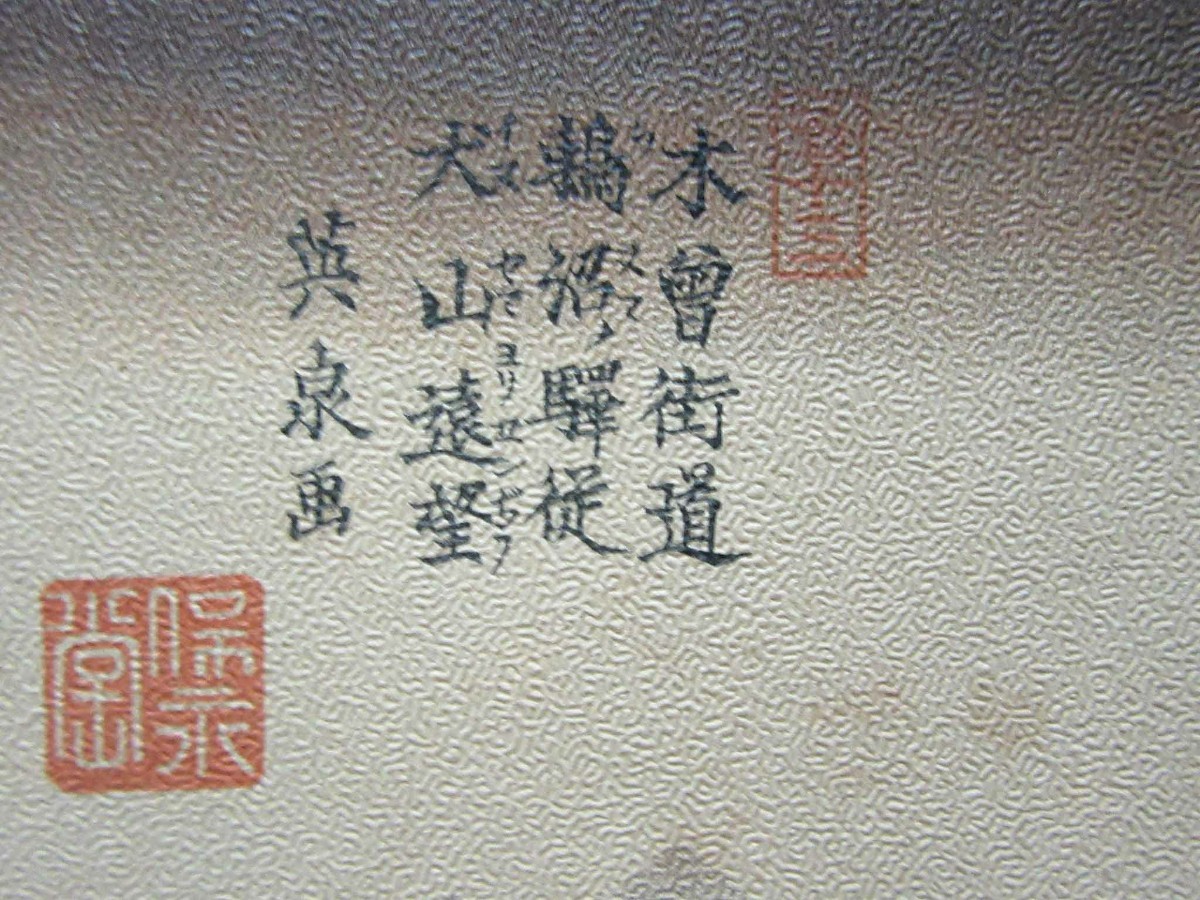 木曾街道
鵜沼ノ驛従
犬山遠望
英泉画
保永堂